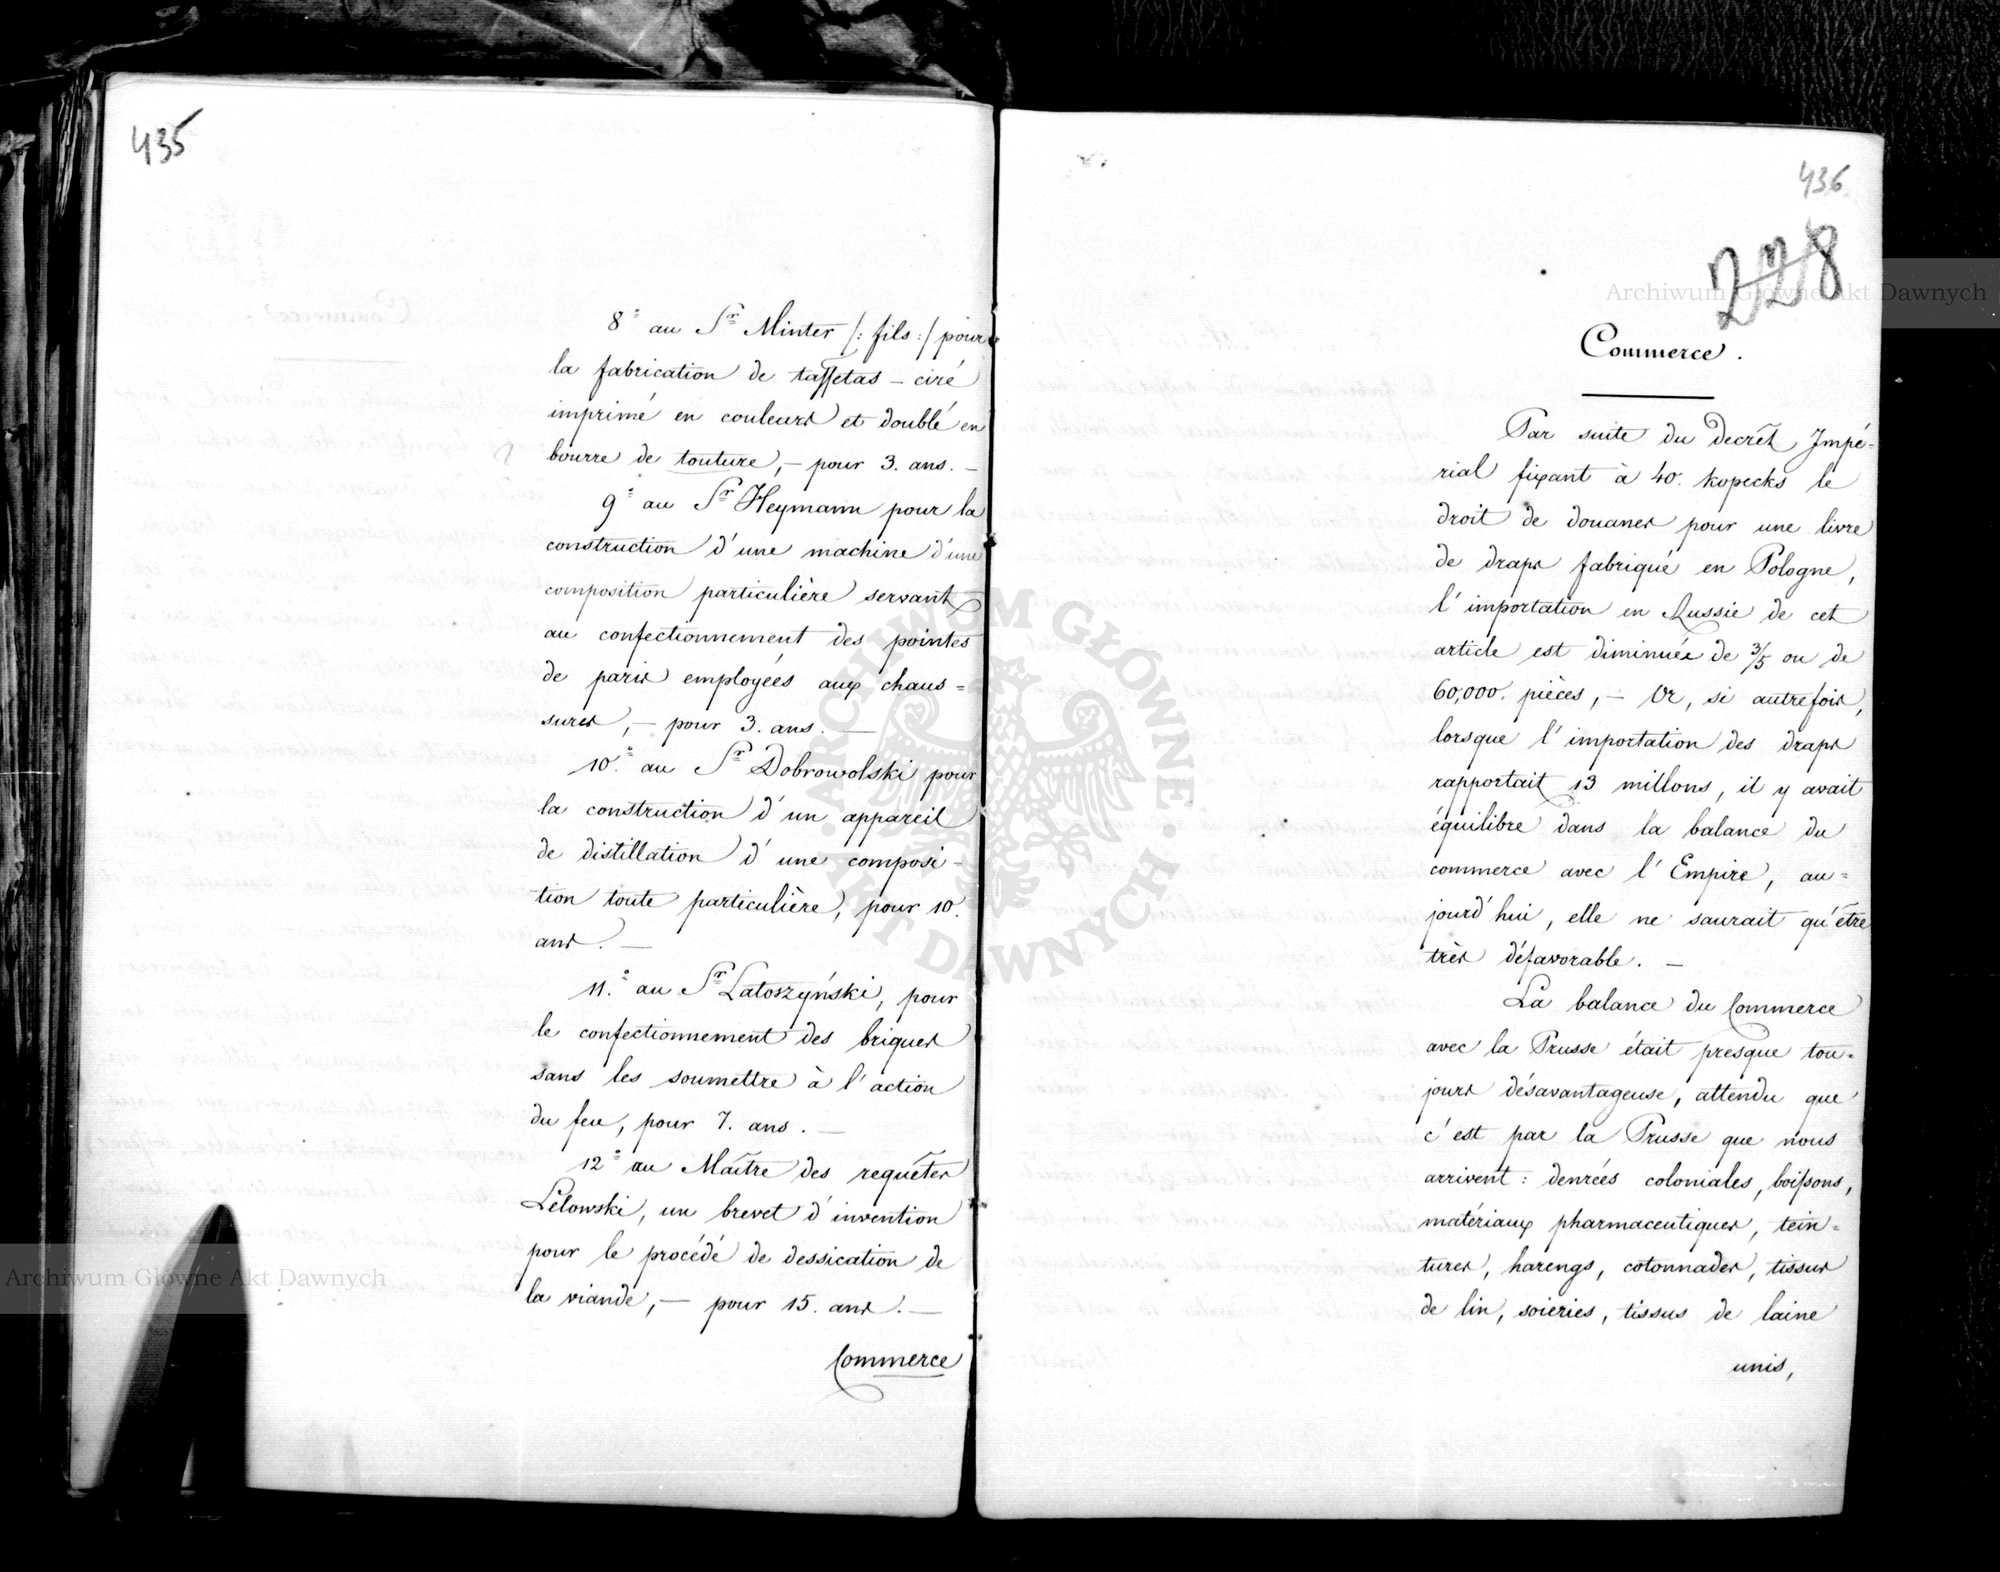 435
8° au Sr Minter /: fils :/ pour
la fabrication de taffetas - ciré
imprimé en couleurs et doublé en
bourre de touture, - pour 3. ans. -
9° au Sr Heymann pour la
construction d'une machine d'une
composition particulière servant
au confectionnement des pointes
de paris employées aux chaus=
sures, - pour 3. ans. -
10.° au Sr Dobrowolski pour
la construction d'un appareil
de distillation d'une composi-
tion toute particulière, pour 10.
ans. -
11.° au Sr Latoszyński, pour
le confectionnement des briques
sans les soumettre à l'action
du feu, pour 7. ans. -
12° au Maître des requêtes
Lélowski, un brevet d'invention
pour le procédé de dessication de
la viande, - pour 15. ans. -
Commerce
436
228
Commerce.
Par suite du decrêt Impé-
rial fixant à 40. kopecks le
droit de douanes pour une livre
de draps fabriqué en Pologne,
l'importation en Russie de cet
article est diminuée de 3/5 ou de
60,000. pièces, - Or, si autrefois,
lorsque l'importation des draps
rapportait 13 millons, il y avait
équilibre dans la balance du
commerce avec l'Empire, au=
jourd'hui, elle ne saurait qu'être
très défavorable. -
La balance du Commerce
avec la Prusse était presque tou-
jours désavantageuse, attendu que
c'est par la Prusse que nous
arrivent : denrées coloniales, boissons,
matériaux pharmaceutiques, tein-
tures, harengs, cotonnades, tissus
de lin, soieries, tissus de laine
unis,
Archiwum Główne Akt Dawnych
Archiwum Główne Akt Dawnych
ARCHIWUM GŁÓWNE AKT DAWNYCH